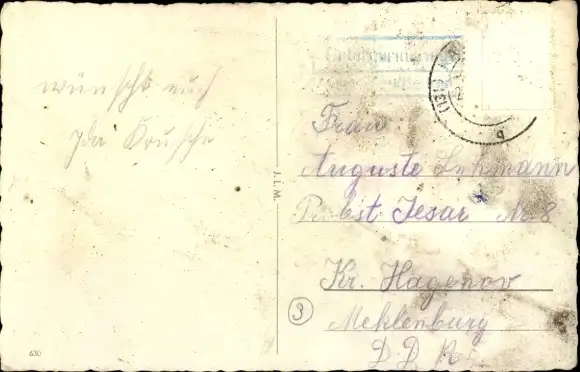 wünscht euch
Ida Krusche
J.L.M.
630
(13
b
Frau
Auguste Lehmann
Probst Jesar Nr 8
Kr. Hagenov
3
Meklenburg
D D R